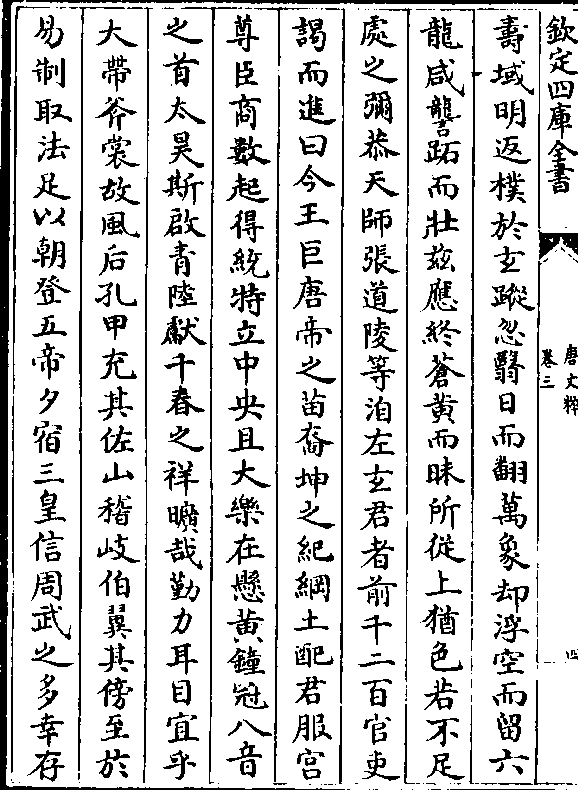 欽定四庫全書
唐文粹
卷三
壽域明返樸於玄蹤忽翳日而翻萬象却浮空而留六
龍咸讋跖而壯茲應終蒼黄而昧所從上猶色若不足
處之彌恭天師張道陵等洎左玄君者前千二百官吏
謁而進曰今王巨唐帝之苖裔坤之紀綱土配君服宫
尊臣商數起得統特立中央且大樂在懸黄鐘冠八音
之首太昊斯啟青陸獻千春之祥曠哉勤力耳目宜乎
大帶斧裳故風后孔甲充其佐山稽岐伯翼其傍至於
易制取法足以朝登五帝夕宿三皇信周武之多幸存